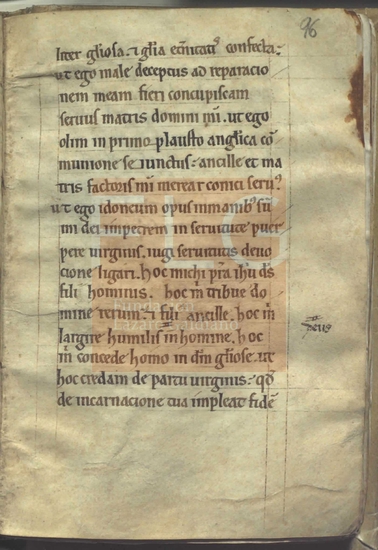 96
liter gliosa. & glia eunitatis confecta:
ut ego male deceptus ad reparacio
nem meam fieri concupiscam
seruus matris domini mei. ut ego
olim in primo plausto anglica cō
munione seiunctus. ancille et ma
tris factoris mī merear conici seruꝰ
ut ego idoneum opus in manibꝰ sū
mi dei impetrem in seruitute puer
pere uirginis. iugi seruitutis deuo
cione ligari. hoc michi pra ihū dī
fili hominis. hoc m̄ tribue do
mine rerum. & fili ancille. hoc m̄
largire humilis in homine. hoc
m̄ concede homo in dm̄ gliose. ut
hoc credam de partu uirginis. qd̄
de incarnacione tua impleat fidē
deus